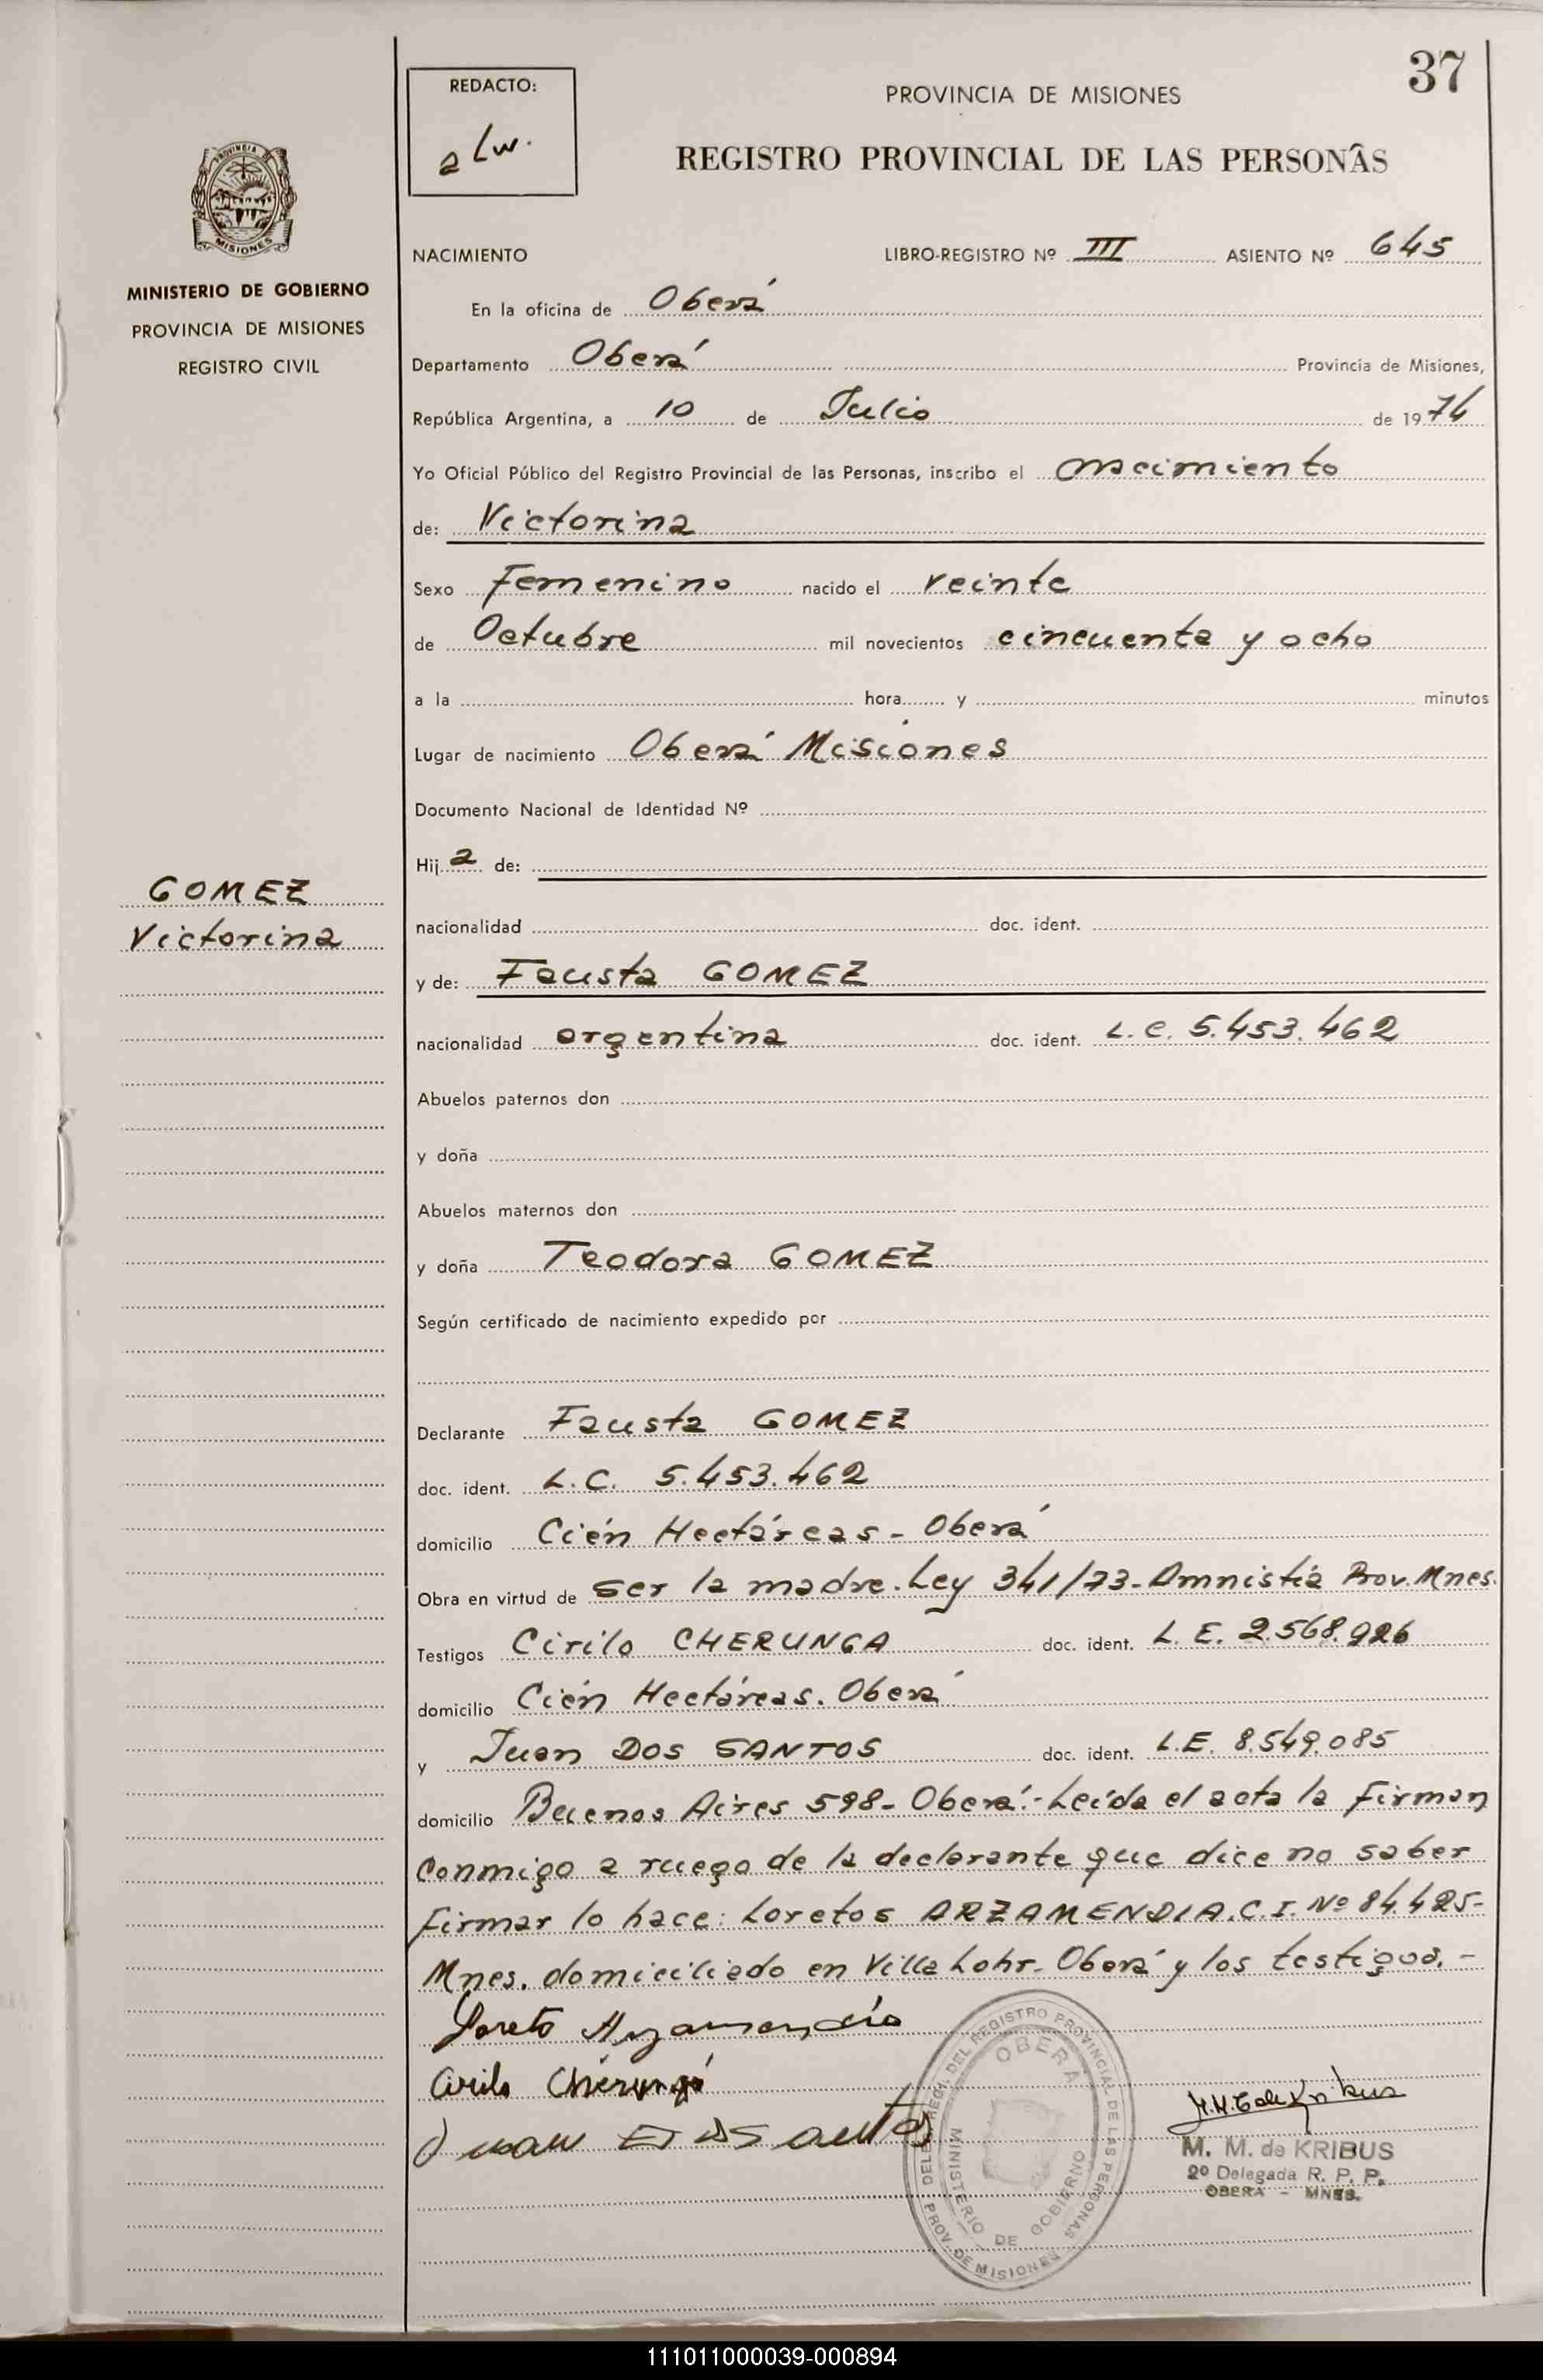 37
REDACTO:
PROVINCIA DE MISIONES
REGISTRO PROVINCIAL DE LAS PERSONAS
PROVINCIA
MISIONES
MINISTERIO DE GOBIERNO
PROVINCIA DE MISIONES
REGISTRO CIVIL
GOMEZ
Victorina
NACIMIENTO LIBRO-REGISTRO Nº III ASIENTO Nº 645
En la oficina de Oberá
Departamento Oberá Provincia de Misiones,
República Argentina, a 10 de Julio de 1974
Yo Oficial Público del Registro Provincial de las Personas, inscribo el nacimiento
de: Victorina
Sexo Femenino nacido el veinte
de Octubre mil novecientos cincuenta y ocho
a la hora y minutos
Lugar de nacimiento Oberá Misiones
Documento Nacional de Identidad Nº
Hija de:
nacionalidad doc. ident.
y de: Fausta GOMEZ
nacionalidad argentina doc. ident. L.C. 5.453.462
Abuelos paternos don
y doña
Abuelos maternos don
y doña Teodora GOMEZ
Según certificado de nacimiento expedido por
Declarante Fausta GOMEZ
doc. ident. L.C. 5.453.462
domicilio Cién Hectáreas - Oberá
Obra en virtud de ser la madre. Ley 341/73-Amnistía Prov. Mnes.
Testigos Cirilo CHERUNGA doc. ident. L.E. 2.568.926
domicilio Cién Hectáreas. Oberá
y Juan DOS SANTOS doc. ident. L.E. 8.549.085
domicilio Buenos Aires 598- Oberá.- Leída el acta la firman
conmigo a ruego de la declarante que dice no saber
firmar lo hace: Loretos ARZAMENDIA. C.I. Nº 84.425-
Mnes. domiciliado en Villa Lohr- Oberá y los testigos.-
Loreto Arzamendia
Cirilo Cherunga
Juan Dos Santos
OBERA
MINISTERIO DE GOBIERNO
DEL REGISTRO PROVINCIAL DE LAS PERSONAS
PROV. DE MISIONES
M. M. de KRIBUS
2º Delegada R. P. P.
OBERA - MNES.
111011000039-000894